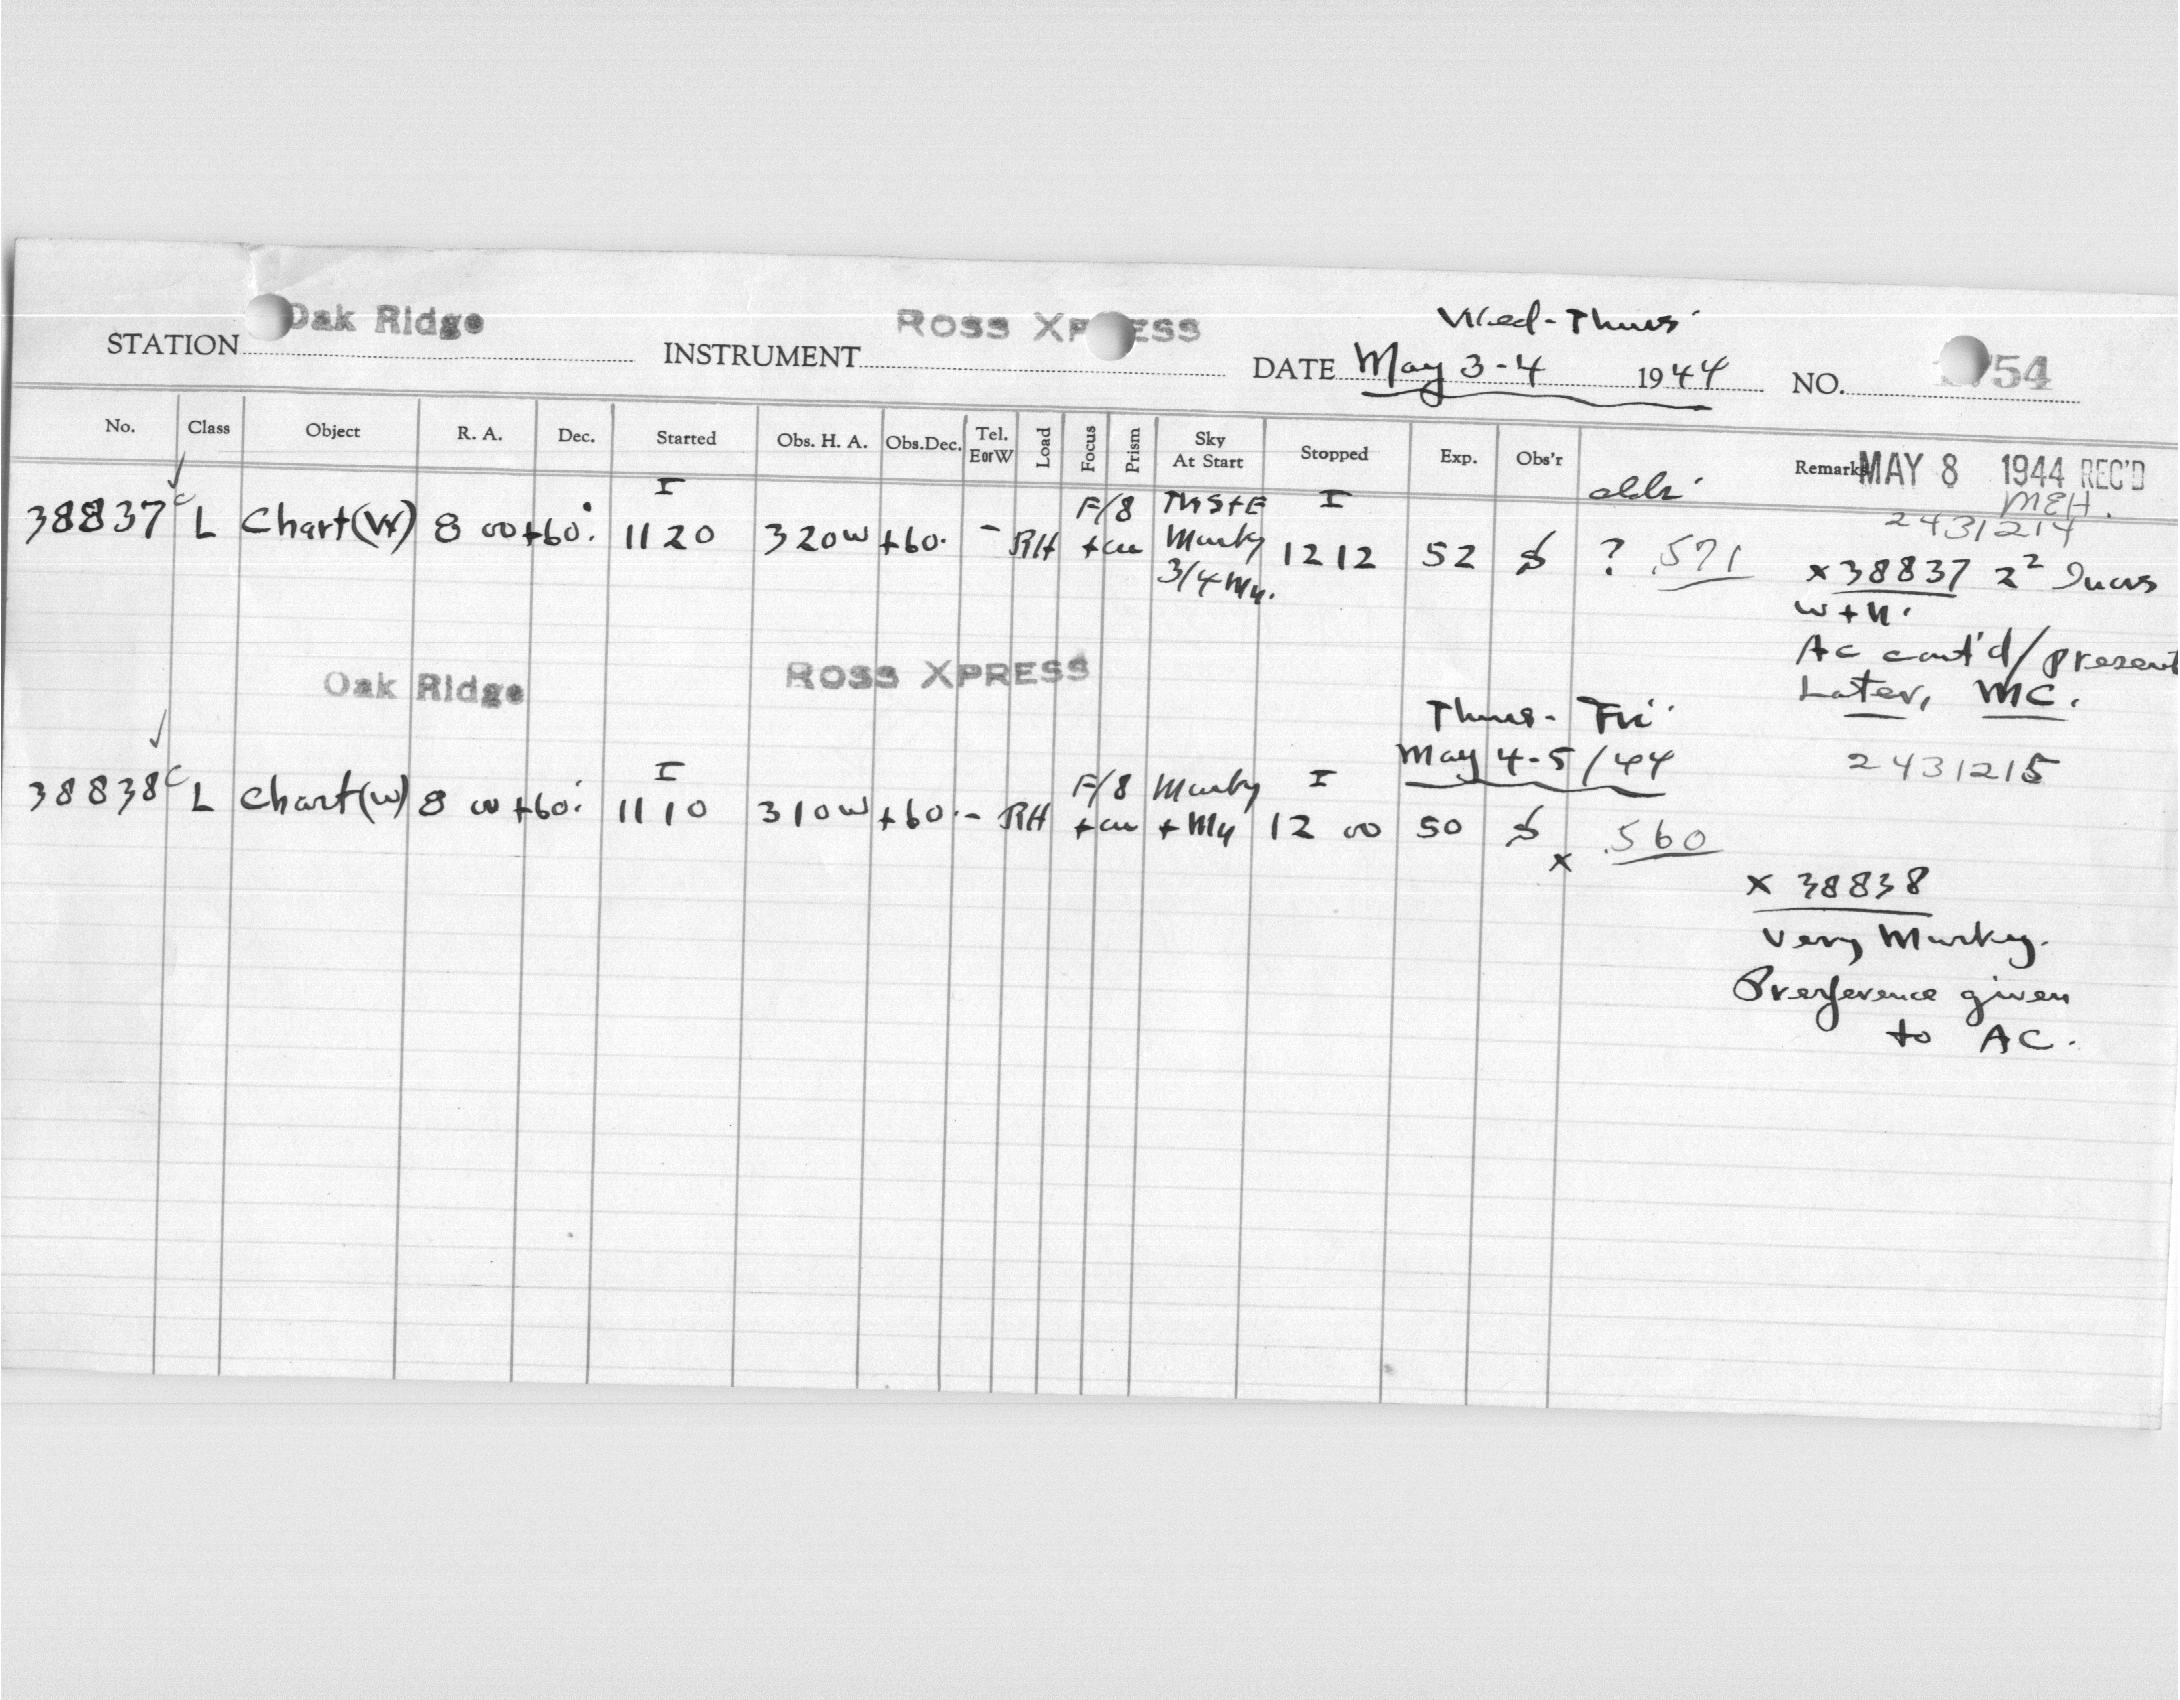 STATION Oak Ridge INSTRUMENT ROSS XPRESS DATE May 3-4 1944 NO. 54
Wed-Thurs
No. Class Object R. A. Dec. Started Obs. H. A. Obs.Dec. Tel. EorW Load Focus Prism Sky At Start Stopped Exp. Obs'r Remarks MAY 8 1944 REC'D
MEH.
2431214
I F/8 I
38837 c L Chart(W) 8 00 +60. 1120 320w +60. - RH Murky 1212 52 ? .571
3/4 My.
x 38837
w + n.
Ac cont'd/present
Later, MC.
Oak Ridge ROSS XPRESS
Thurs- Fri
May 4-5/44
2431215
I F/8 Murky I
38838 c L Chart(w) 8 00 +60. 1110 310w +60. - RH + My 12 00 50 .560
x
x 38838
Very Murky.
Preference given
to AC.